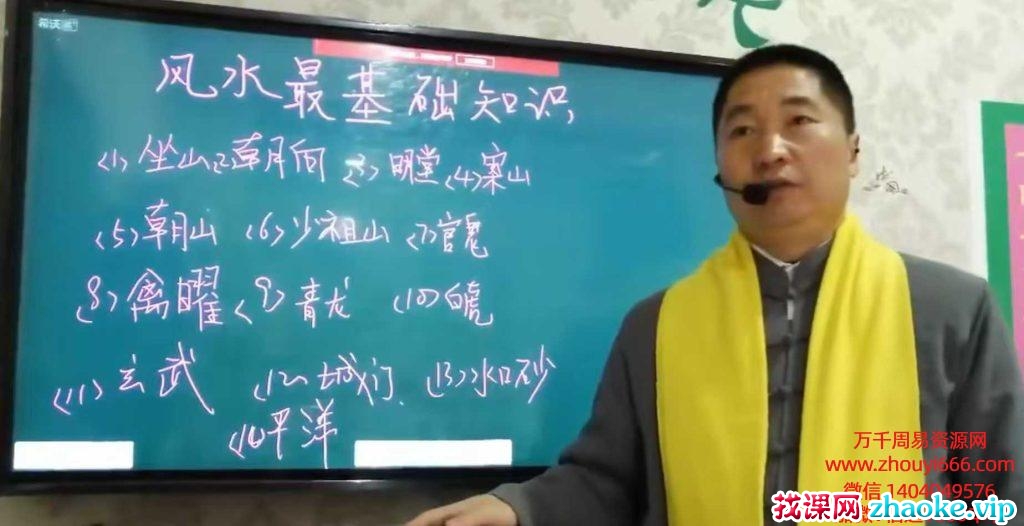 希沃
风水最基础知识,
(1)坐山(2)朝向(3)明堂(4)案山
(5)朝山 (6)少祖山 (7)官鬼
(8)禽曜(9)青龙 (10)白虎
(11)玄武 (12)城门、(13)水口砂
平洋
万千周易资源网
www.zhouyi666.com
微信1404049576
找课网zhaoke.vip